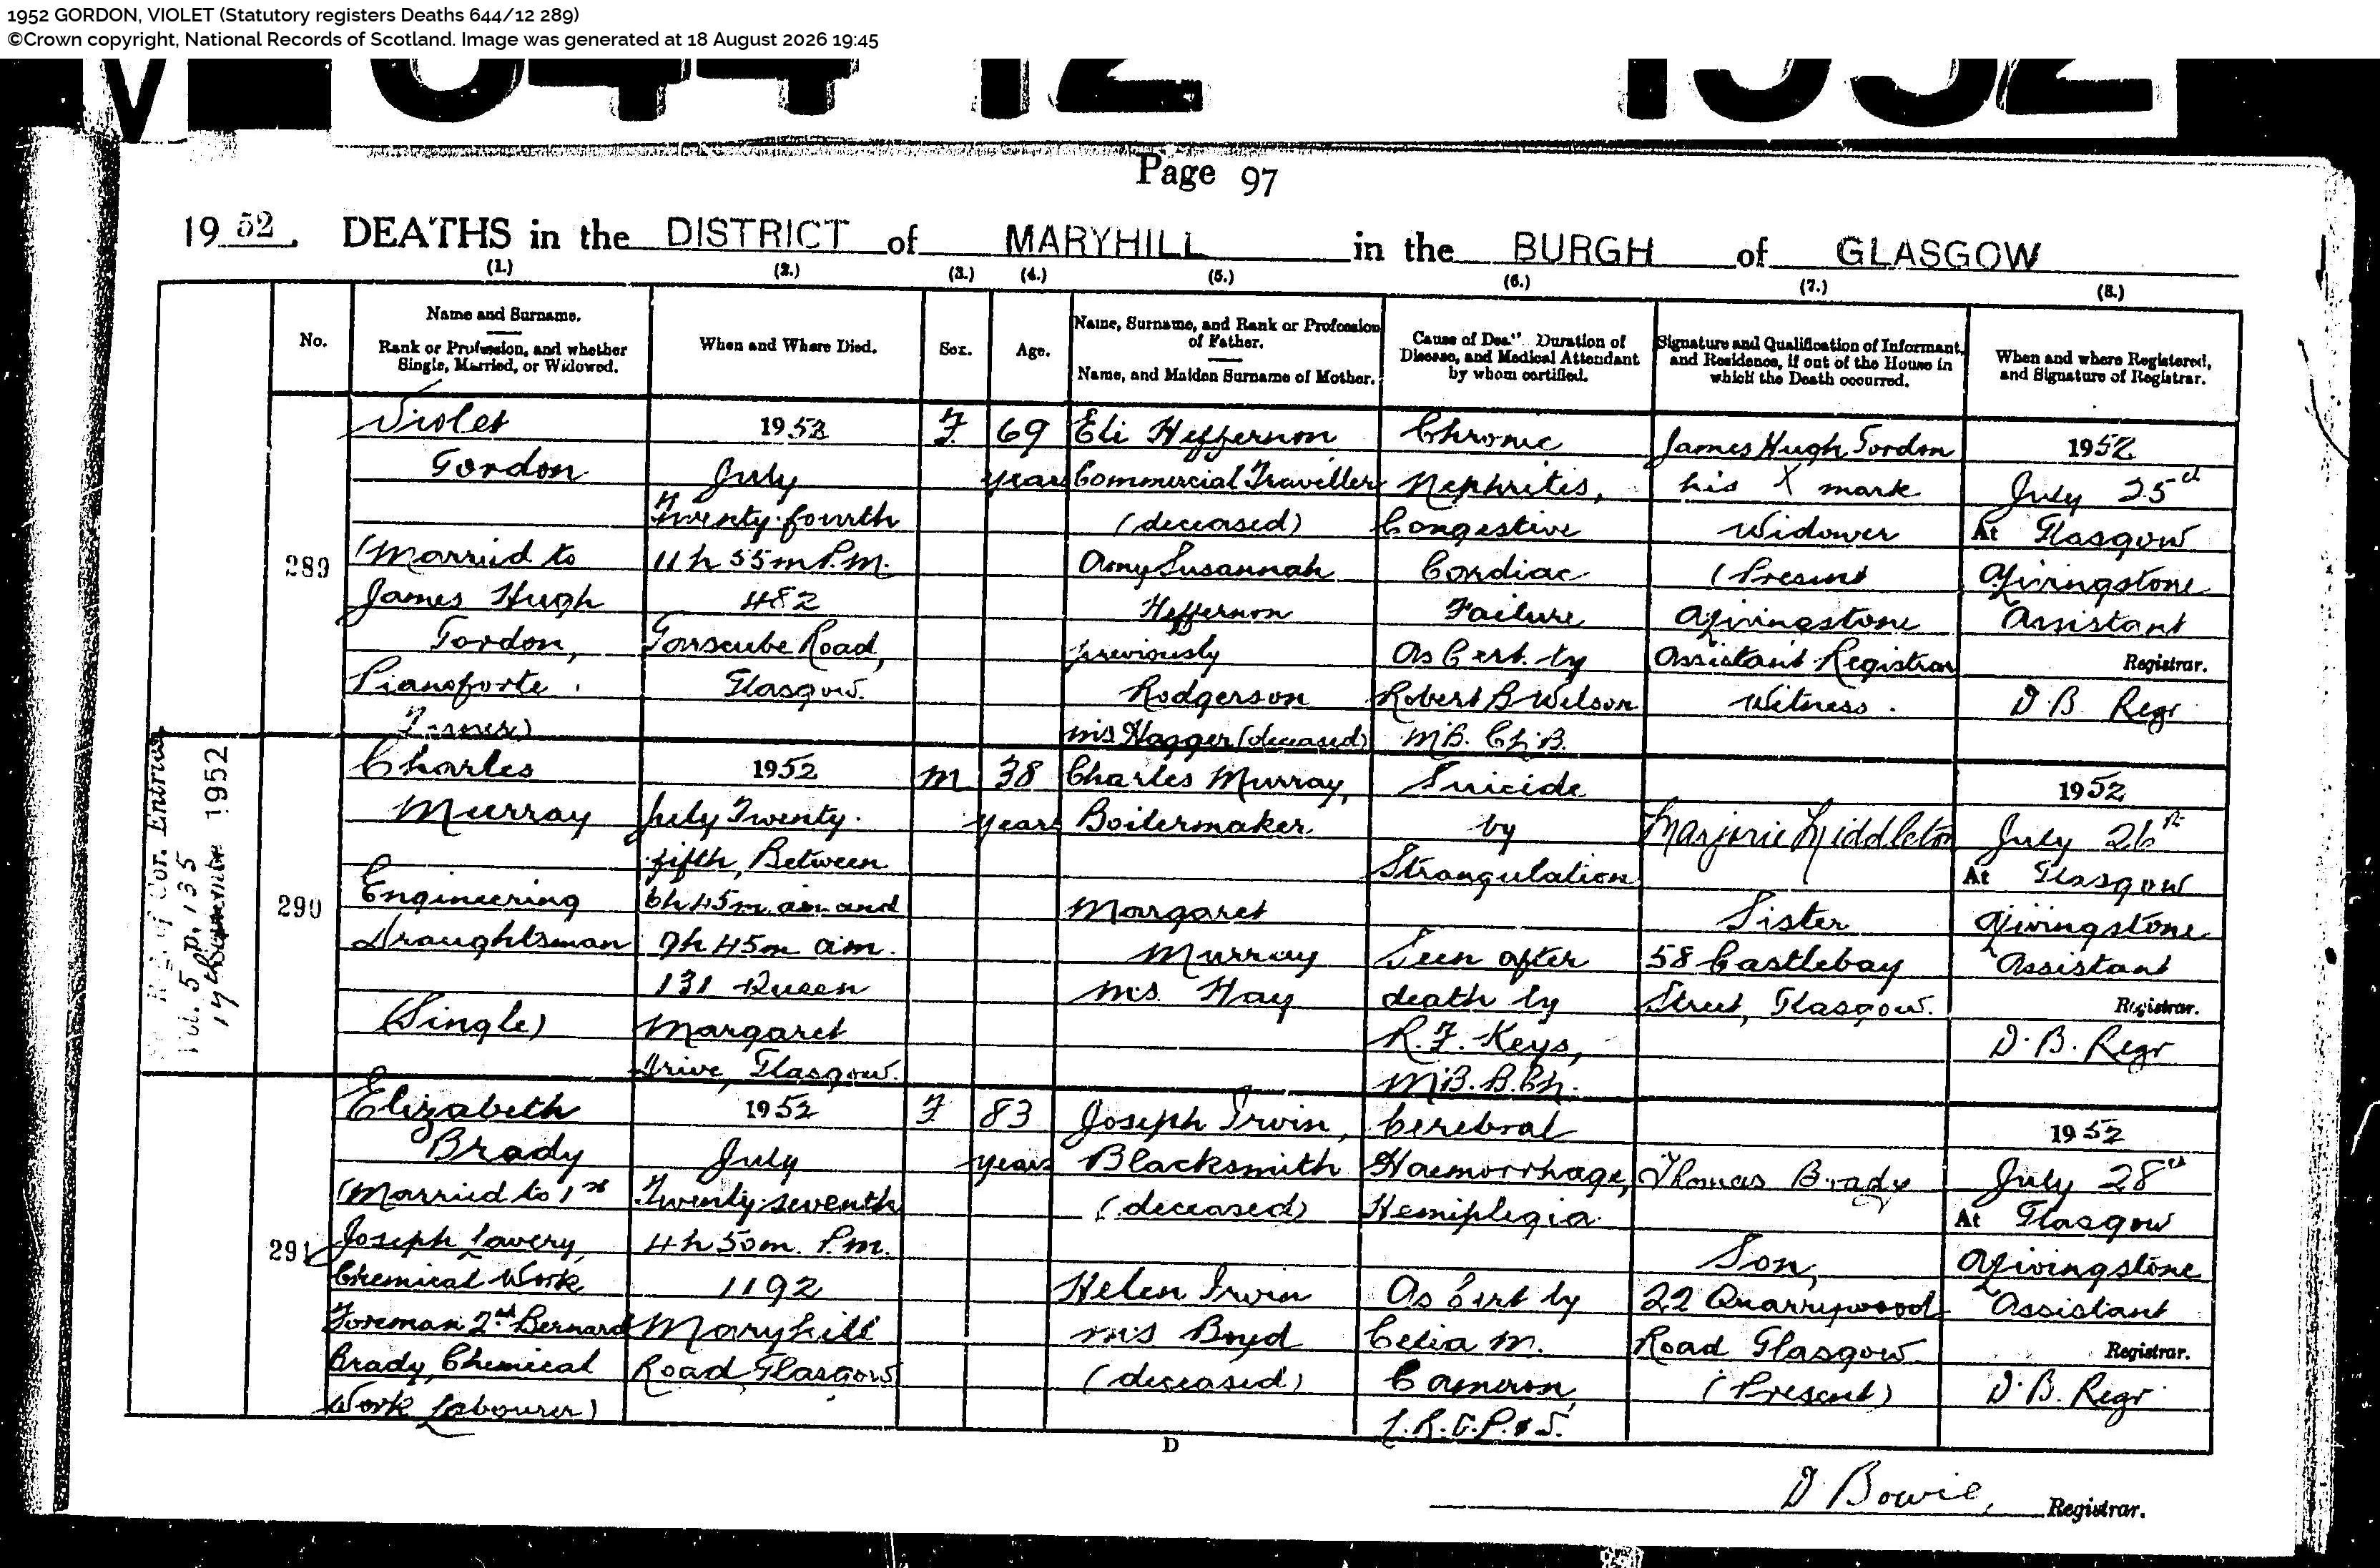 1952 GORDON, VIOLET (Statutory registers Deaths 644/12 289)
©Crown copyright, National Records of Scotland. Image was generated at 18 August 2026 19:45
644 12 1952
Page 97
1952. DEATHS in the DISTRICT of MARYHILL in the BURGH of GLASGOW
(1.) (2.) (3.) (4.) (5.) (6.) (7.) (8.)
No.
Name and Surname.
Rank or Profession, and whether
Single, Married, or Widowed.
When and Where Died.
Sex.
Age.
Name, Surname, and Rank or Profession
of Father.
Name, and Maiden Surname of Mother.
Cause of Dea.. Duration of
Disease, and Medical Attendant
by whom certified.
Signature and Qualification of Informant,
and Residence, if out of the House in
which the Death occurred.
When and where Registered,
and Signature of Registrar.
289
Violet
Gordon
(Married to
James Hugh
Gordon,
Pianoforte
Tuner)
1952
July
Twenty-fourth
11h 55m P.M.
482
Garscube Road,
Glasgow.
F.
69
years
Eli Heffernon
Commercial Traveller
(deceased)
Amy Susannah
Heffernon
previously
Rodgerson
m.s. Hagger (deceased)
Chronic
Nephritis,
Congestive
Cardiac
Failure
As Cert. by
Robert B Wilson
M.B. Ch.B.
James Hugh Gordon
his X mark
Widower
(Present
A Livingstone
Assistant Registrar
Witness.
1952
July 25th
At Glasgow
A Livingstone
Assistant
Registrar.
D B Regr
Cor. Entries
Vol. 5 p. 135
1952
290
Charles
Murray
Engineering
Draughtsman
(Single)
1952
July Twenty-
fifth, Between
6h 45m a.m and
9h 45m a.m.
131 Queen
Margaret
Drive, Glasgow.
M
38
years
Charles Murray,
Boilermaker
Margaret
Murray
m.s. Hay
Suicide
by
Strangulation
Seen after
death by
R. F. Keys,
M.B. B.Ch.
Marjorie Middleton
Sister
58 Castlebay
Street, Glasgow.
1952
July 26th
At Glasgow
A Livingstone
Assistant
Registrar.
D. B. Regr
291
Elizabeth
Brady
(Married to 1st
Joseph Lavery,
Chemical Work
Foreman 2nd Bernard
Brady, Chemical
Work Labourer)
1952
July
Twenty-seventh
4h 50m. P.m.
1192
Maryhill
Road, Glasgow
F
83
years
Joseph Irvin,
Blacksmith
(deceased)
Helen Irvin
m.s Boyd
(deceased)
Cerebral
Haemorrhage,
Hemiplegia.
As Cert by
Celia M.
Cameron,
L.R.C.P. & S.
Thomas Brady
Son,
22 Quarrywood
Road Glasgow
(Present)
1952
July 28th
At Glasgow
A Livingstone
Assistant
Registrar.
D. B. Regr
D
D Bowie, Registrar.